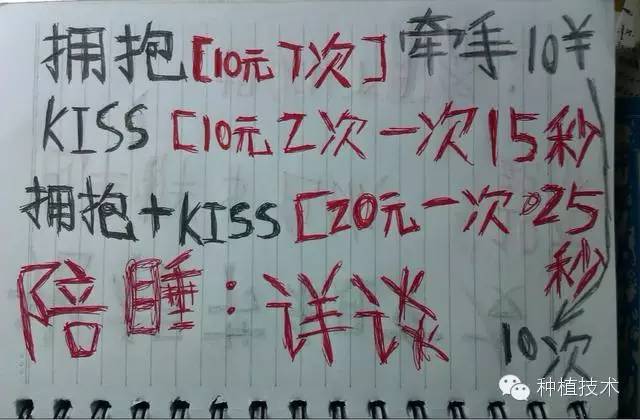 拥抱[10元7次] 牵手10¥
KISS [10元2次一次15秒
拥抱+KISS [20元一次025
秒
陪睡:详谈
10次
种植技术